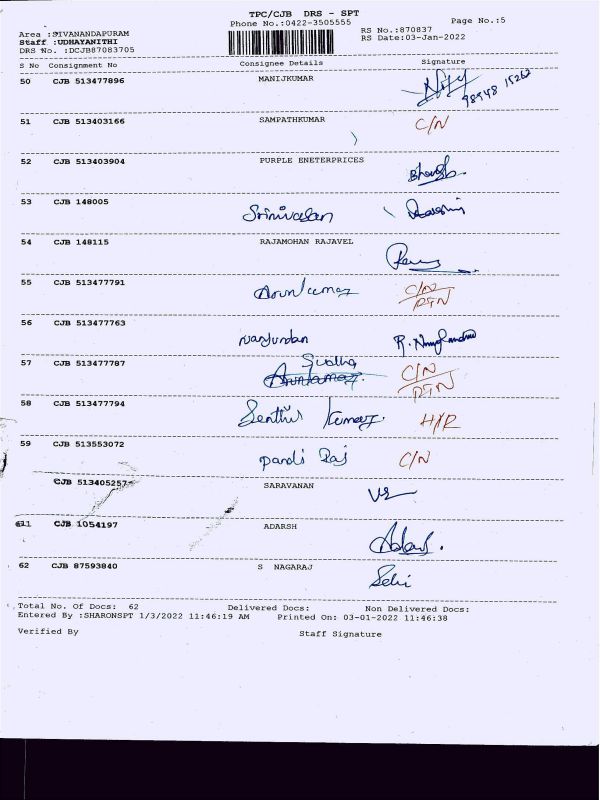 TPC/CJB DRS - SPT
Phone No.:0422-3505555
Page No.:5
Area :SIVANANDAPURAM
RS No.:870837
Staff :UDHAYANITHI
RS Date:03-Jan-2022
DRS No. :DCJB87083705
S No Consignment No Consignee Details Signature
50 CJB 513477896 MANIJKUMAR
98948 15262
51 CJB 513403166 SAMPATHKUMAR C/N
52 CJB 513403904 PURPLE ENETERPRICES
53 CJB 148005 Srinivasan
54 CJB 148115 RAJAMOHAN RAJAVEL
55 CJB 513477791 Arunkumar C/N
56 CJB 513477763 Nanjundan
57 CJB 513477787 C/N
58 CJB 513477794 Senthil Kumar
59 CJB 513553072 Pandi Raj C/N
CJB 513405257 SARAVANAN
CJB 1054197 ADARSH
62 CJB 87593840 S NAGARAJ Selvi
Total No. Of Docs: 62 Delivered Docs: Non Delivered Docs:
Entered By :SHARONSPT 1/3/2022 11:46:19 AM Printed On: 03-01-2022 11:46:38
Verified By Staff Signature